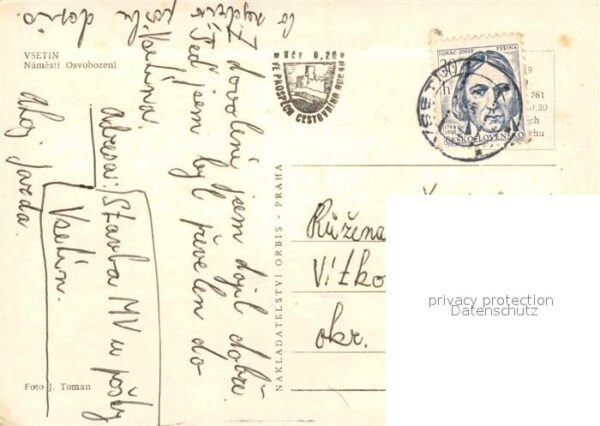 VSETÍN
Náměstí Osvobození
Z dovolený jsem dojel dobře.
Teď jsem byl převelen do
Vsetína.
adresa: Stavba MV u pošty
Vsetín.
Ahoj. Jarda.
Kčr 0,20
IGNÁC JOSEF PEŠINA
30 h
ČESKOSLOVENSKO
VSETÍN
19
761
0,20
NAKLADATELSTVÍ ORBIS - PRAHA
Růžena
Vítko
okr.
Foto J. Toman
privacy protection
Datenschutz